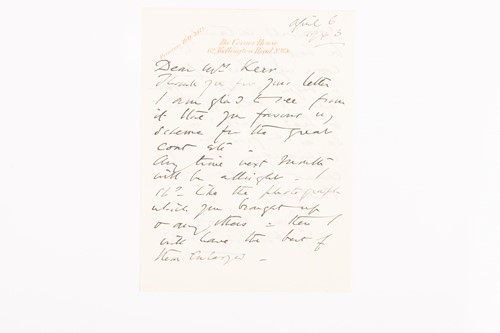 April 6
The Corner House
Dear Mrs Kerr
Thank you for your letter
I am glad to see from
it that you favour my
scheme for the great
coat etc -
Any time next month
will be allright. I
shd like the photograph
which you brought up
or any others - then I
will have the best of
them enlarged -